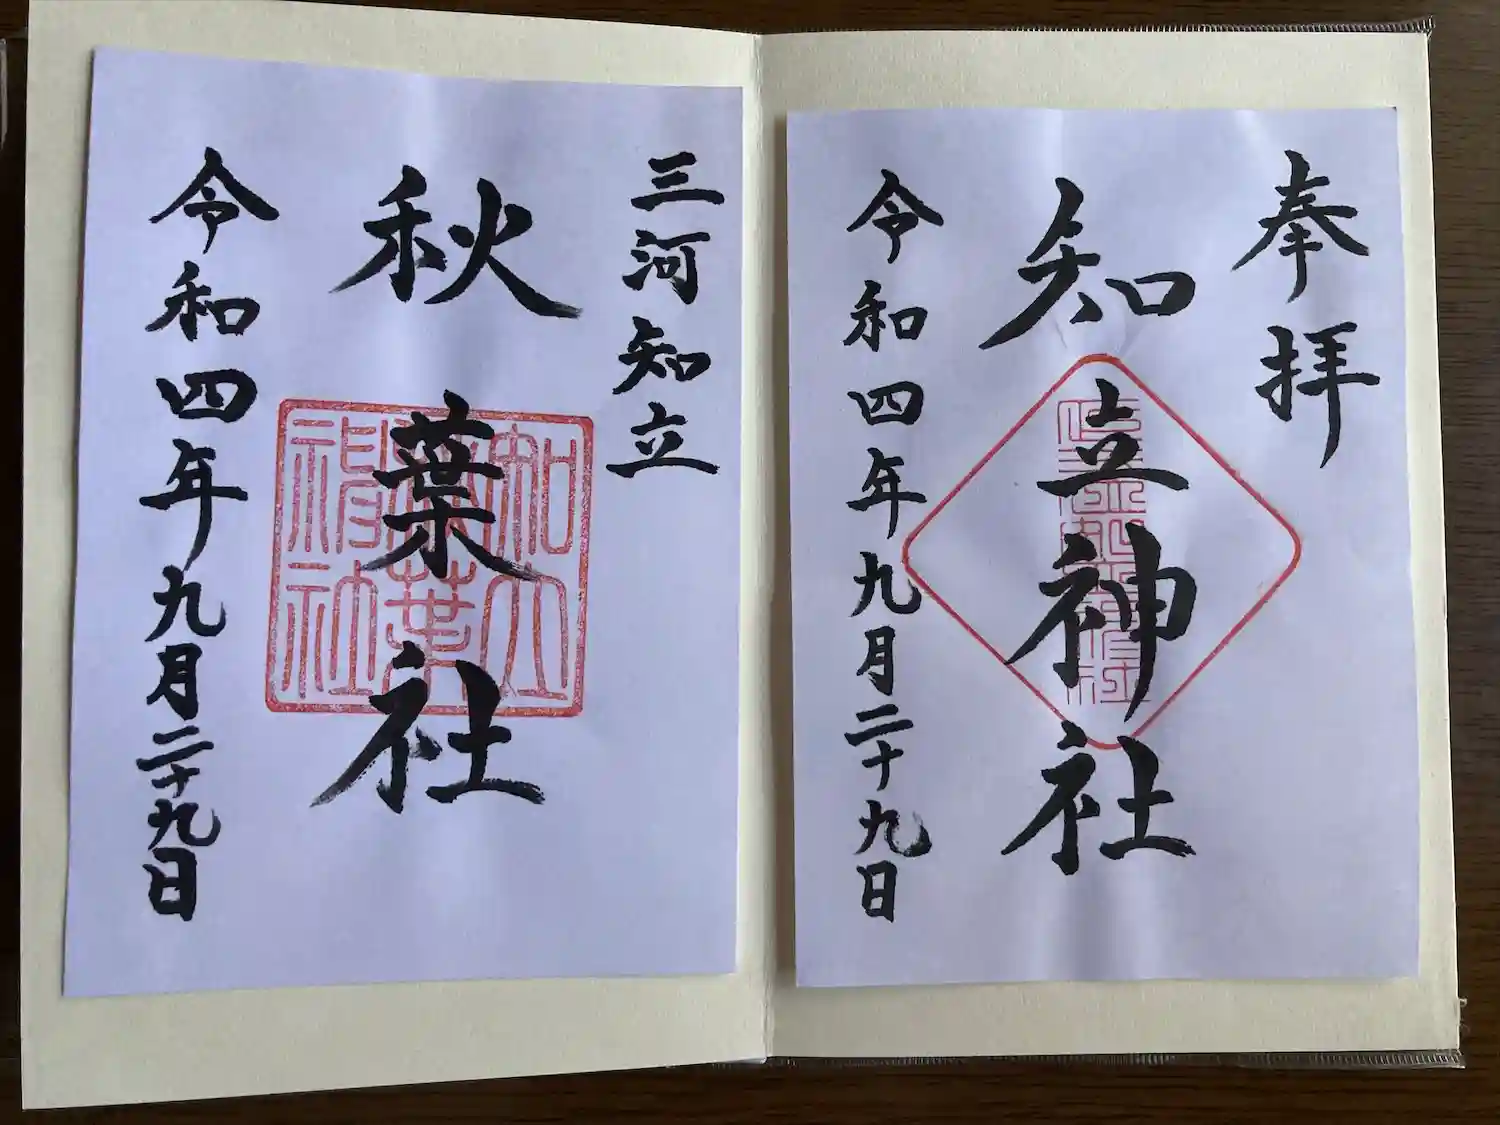 奉拝
知立神社
令和四年九月二十九日
三河知立
秋葉社
令和四年九月二十九日
知立
秋葉社